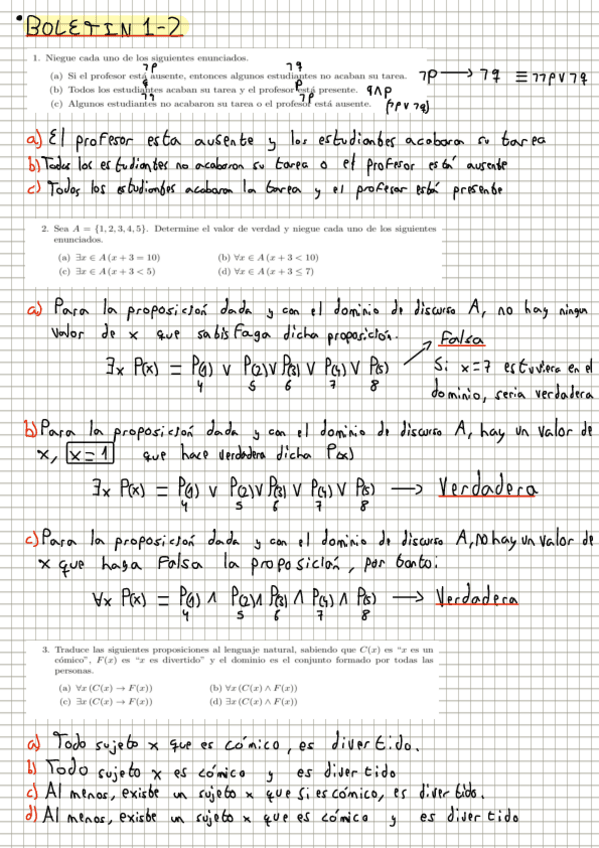 • BOLETIN 1-2
1. Niegue cada uno de los siguientes enunciados.
¬p ¬q
(a) Si el profesor está ausente, entonces algunos estudiantes no acaban su tarea. ¬p ⟶ ¬q ≡ ¬¬p ∨ ¬q
q p
(b) Todos los estudiantes acaban su tarea y el profesor está presente. q ∧ p
¬q ¬p
(c) Algunos estudiantes no acabaron su tarea o el profesor está ausente. (¬p ∨ ¬q)
a) El profesor esta ausente y los estudiantes acabaron su tarea
b) Todos los estudiantes no acabaron su tarea o el profesor está ausente
c) Todos los estudiantes acabaron la tarea y el profesor está presente
2. Sea A = {1, 2, 3, 4, 5}. Determine el valor de verdad y niegue cada uno de los siguientes
enunciados.
(a) ∃x ∈ A (x + 3 = 10) (b) ∀x ∈ A (x + 3 < 10)
(c) ∃x ∈ A (x + 3 < 5) (d) ∀x ∈ A (x + 3 ≤ 7)
a) Para la proposición dada y con el dominio de discurso A, no hay ningun
valor de x que satisfaga dicha proposición. Falsa
∃x P(x) = P(1) ∨ P(2) ∨ P(3) ∨ P(4) ∨ P(5) Si x=7 estuviera en el
4 5 6 7 8 dominio, seria verdadera
b) Para la proposición dada y con el dominio de discurso A, hay un valor de
x, x=1 que hace verdadera dicha P(x)
∃x P(x) = P(1) ∨ P(2) ∨ P(3) ∨ P(4) ∨ P(5) ⟶ Verdadera
4 5 6 7 8
c) Para la proposición dada y con el dominio de discurso A, no hay un valor de
x que haga Falsa la proposición, por tanto:
∀x P(x) = P(1) ∧ P(2) ∧ P(3) ∧ P(4) ∧ P(5) ⟶ Verdadera
4 5 6 7 8
3. Traduce las siguientes proposiciones al lenguaje natural, sabiendo que C(x) es “x es un
cómico”, F(x) es “x es divertido” y el dominio es el conjunto formado por todas las
personas.
(a) ∀x (C(x) → F(x)) (b) ∀x (C(x) ∧ F(x))
(c) ∃x (C(x) → F(x)) (d) ∃x (C(x) ∧ F(x))
a) Todo sujeto x que es cómico, es divertido.
b) Todo sujeto x es cómico y es divertido
c) Al menos, existe un sujeto x que si es cómico, es divertido.
d) Al menos, existe un sujeto x que es cómico y es divertido